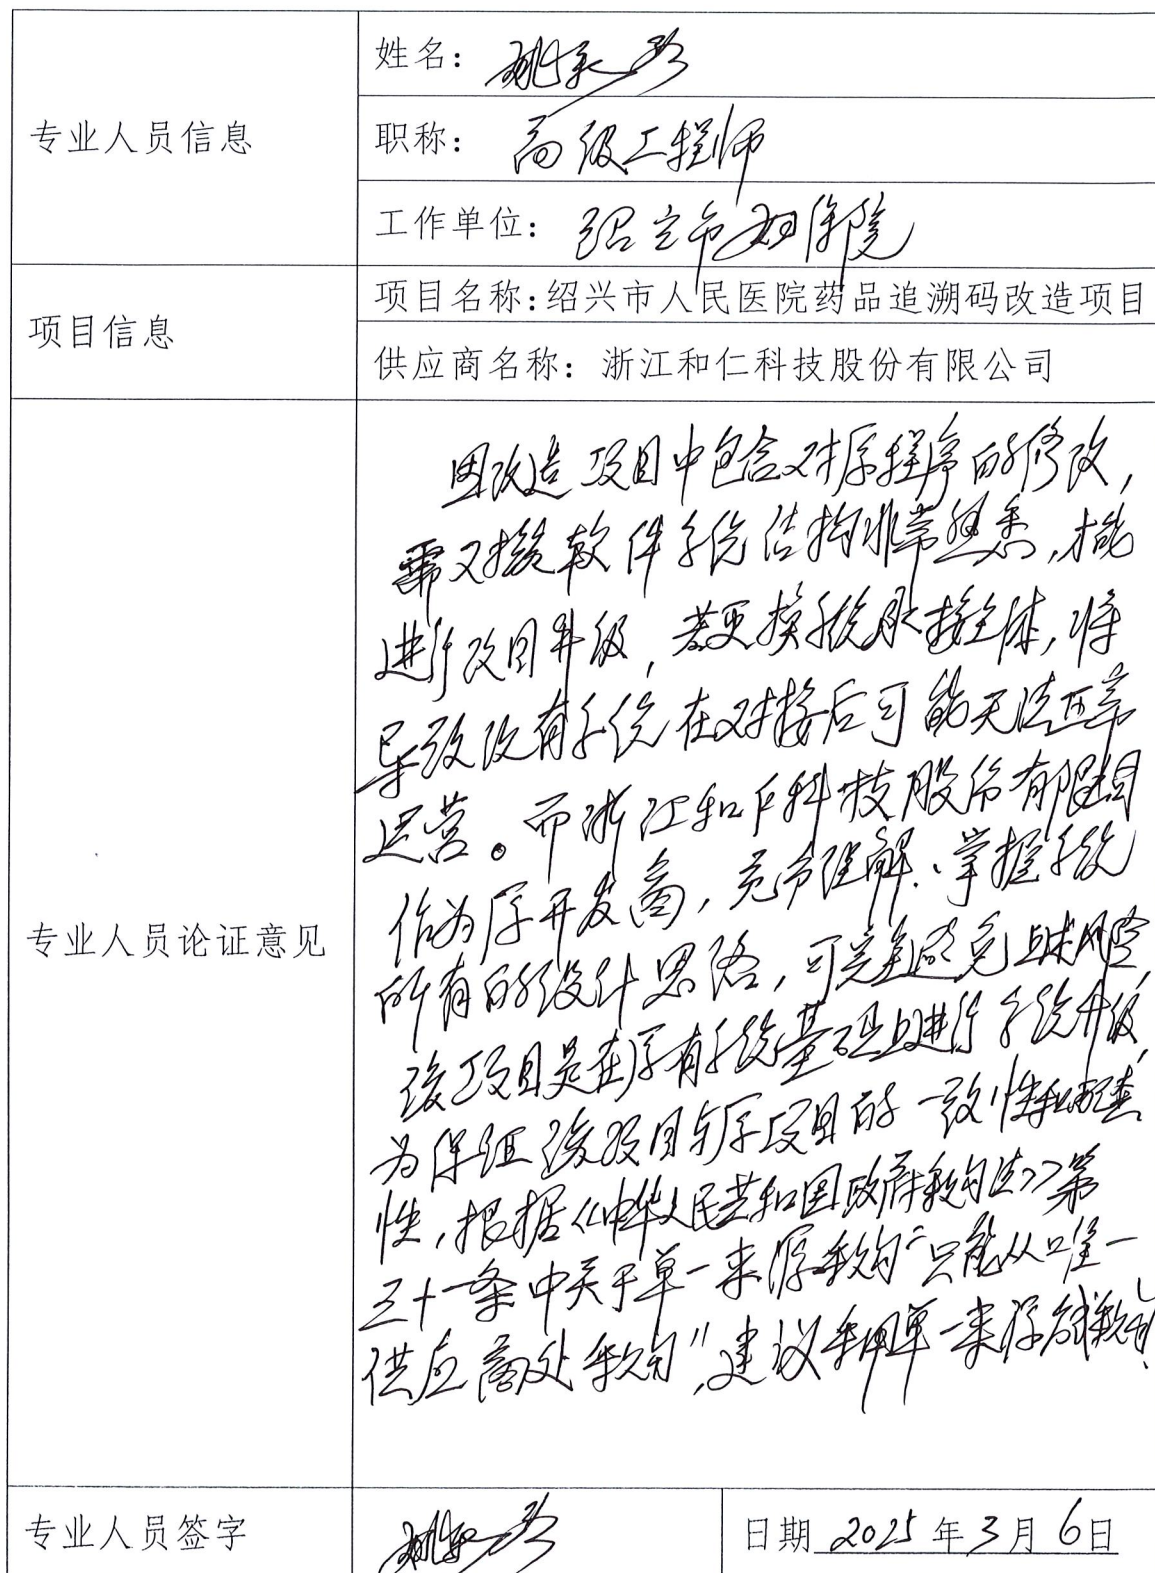 专业人员信息
姓名：姚
职称：高级工程师
工作单位：绍兴市妇保院
项目信息
项目名称：绍兴市人民医院药品追溯码改造项目
供应商名称：浙江和仁科技股份有限公司
专业人员论证意见
因改造项目中包含对原程序的修改，
需对接软件系统结构非常熟悉，才能
进行项目升级，若更换系统承接主体，将
导致改有系统在对接后可能无法正常
运营。而浙江和仁科技股份有限公司
作为原开发商，充分理解、掌握系统
所有的设计思路，可完全避免上述风险，
该项目是在原有系统基础上进行系统升级，
为保证该项目与原项目的一致性和配套
性，根据《中华人民共和国政府采购法》第
三十一条中关于单一来源采购“只能从唯一
供应商处采购”，建议采用单一来源方式采购。
专业人员签字
姚
日期 2025 年 3 月 6 日